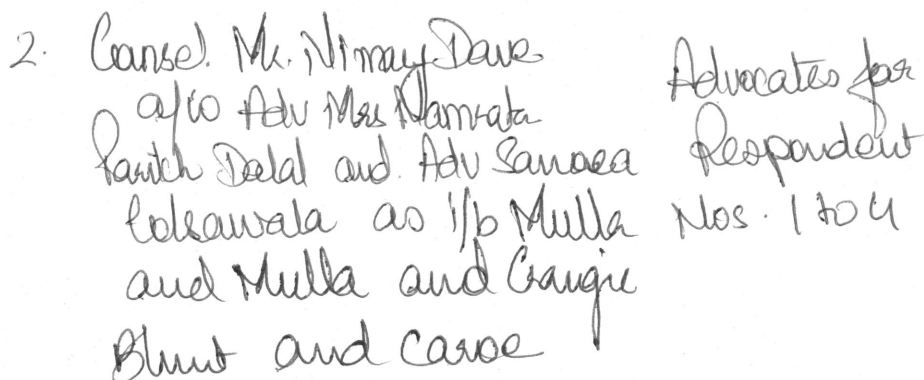 2. Counsel. Mr. Nimay Dave
a/w Adv Mrs Namrata
Parikh Dalal and. Adv Samaea
Colsawala as i/b Mulla
and Mulla and Craigie
Blunt and Caroe
Advocates for
Respondent
Nos. 1 to 4